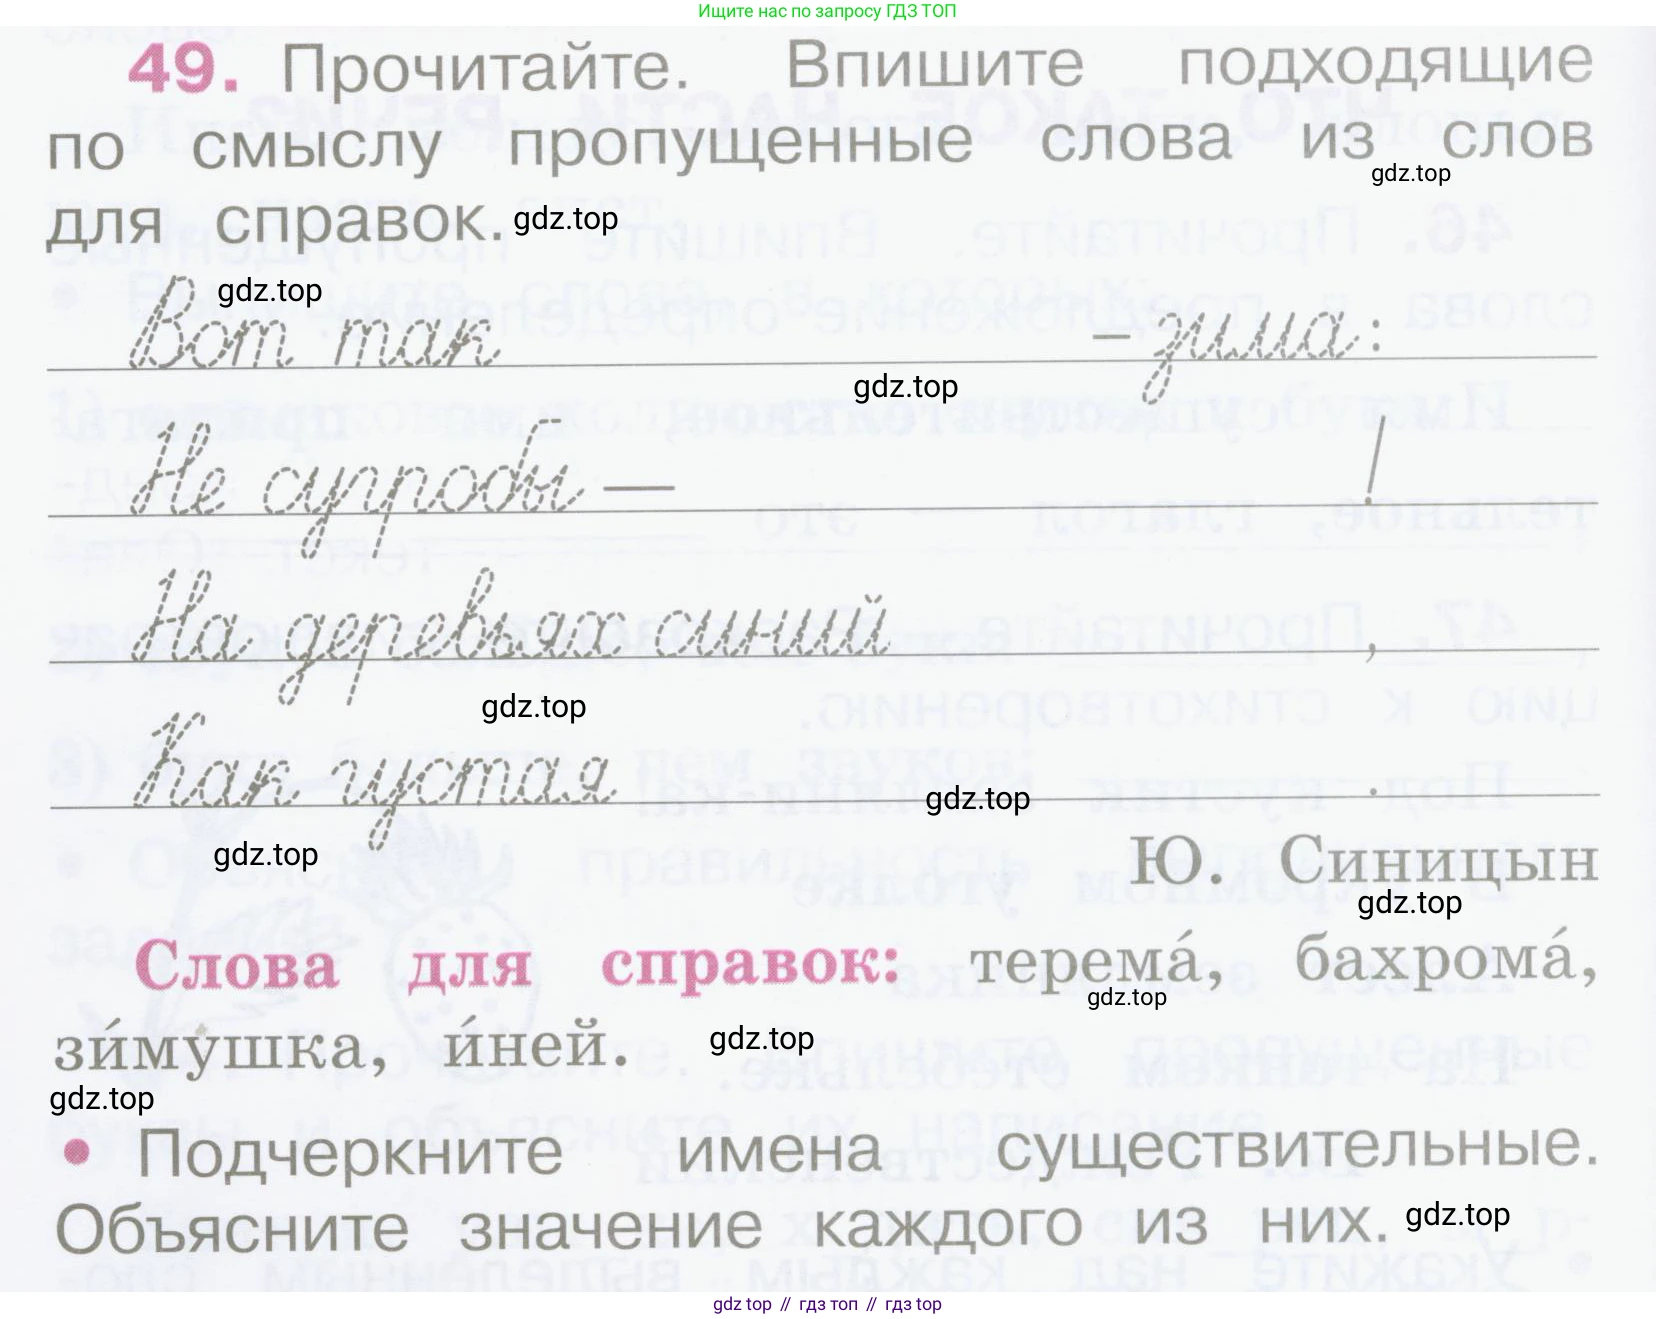 Ищите нас по запросу ГДЗ ТОП
49. Прочитайте. Впишите подходящие
по смыслу пропущенные слова из слов
gdz.top
для справок. gdz.top
gdz.top
Вот так –зима:
gdz.top
Не сугробы — !
На деревьях синий ,
gdz.top
Как густая .
gdz.top
gdz.top
Ю. Синицын
gdz.top
Слова для справок: терема́, бахрома́,
gdz.top
зи́мушка, и́ней.
gdz.top
gdz.top
• Подчеркните имена существительные.
Объясните значение каждого из них. gdz.top
gdz top // гдз топ // gdz top